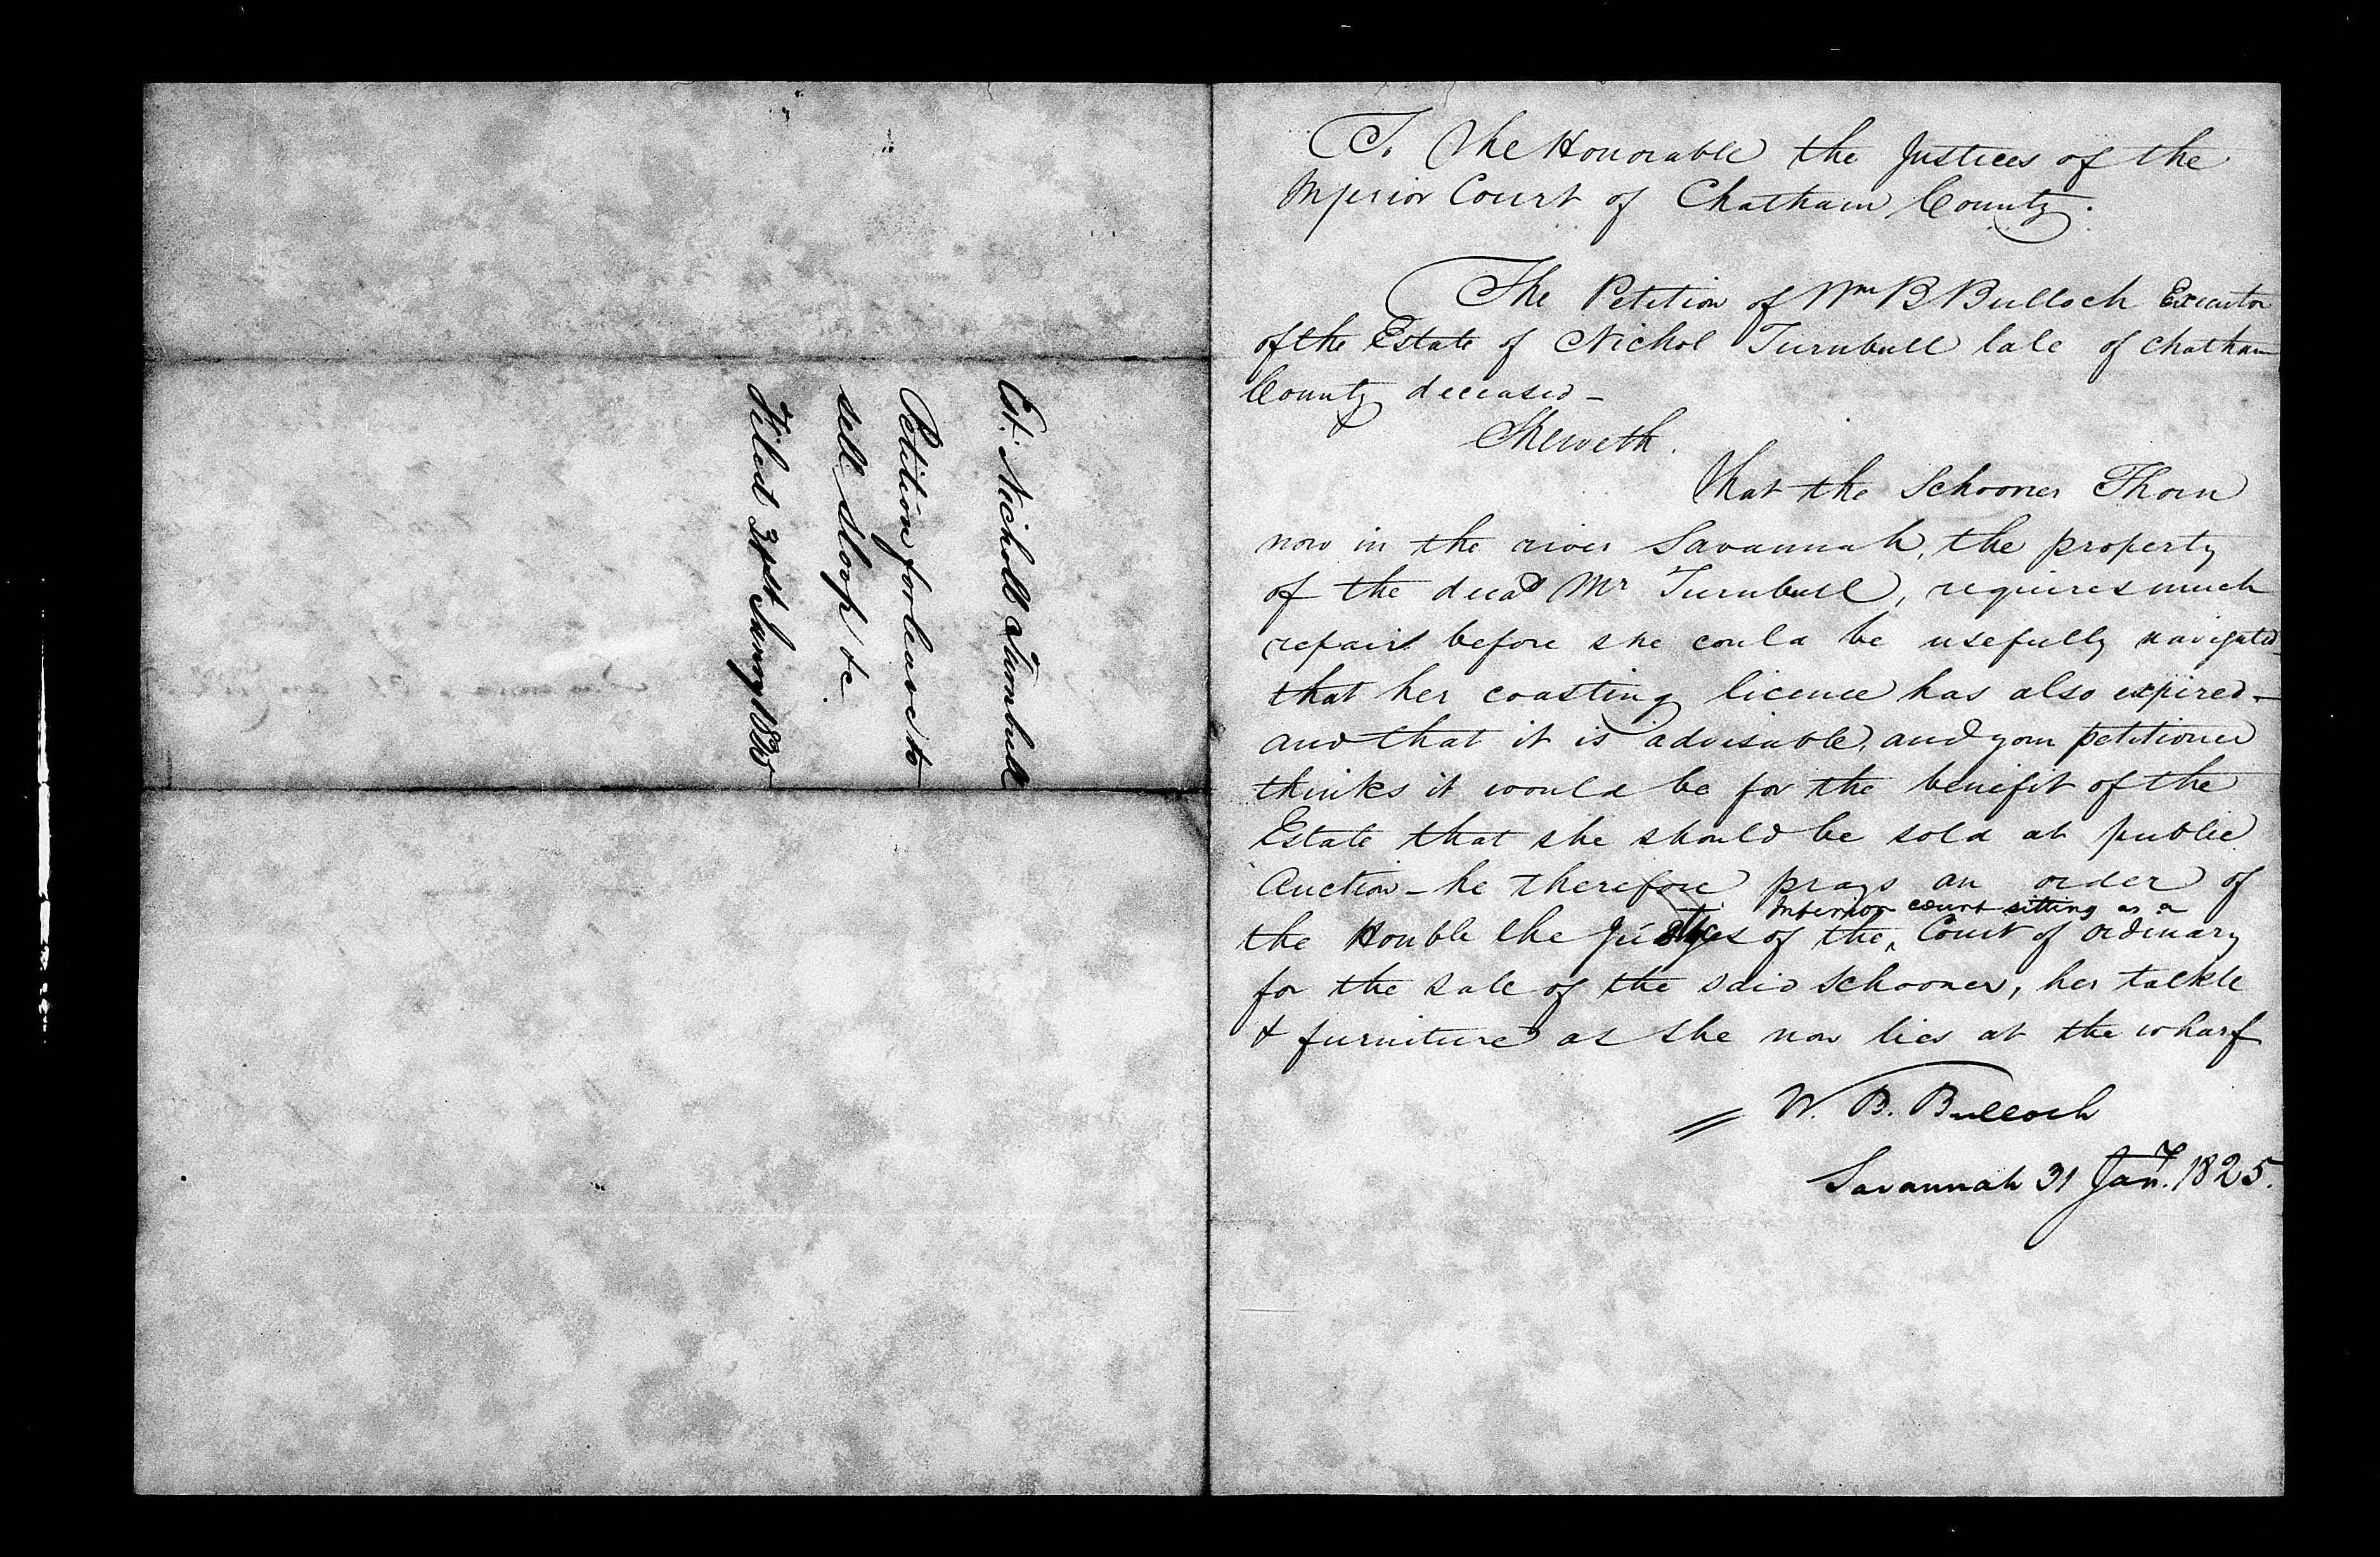 Est. Nicholl Turnbull
Petition for leave to
sell Sloop &c.
Filed 31st Janury 1825
To The Honorable the Justices of the
Inferior Court of Chatham County.
The Petition of Wm B Bulloch Executor
of the Estate of Nichol Turnbull late of Chatham
County deceased –
Sheweth.
That the Schooner Thorn
now in the river Savannah, the property
of the decad Mr Turnbull, requires much
repairs before she could be usefully navigated –
that her coasting licence has also expired –
and that it is advisable, and your petitioner
thinks it would be for the benefit of the
Estate that she should be sold at public
Auction – he therefore prays an order of
Inferior court sitting as a
the Honble the Justices of the ‸ Court of Ordinary
for the sale of the said schooner, her tackle
& furniture as she now lies at the wharf
W. B. Bulloch
Savannah 31 Jany. 1825.